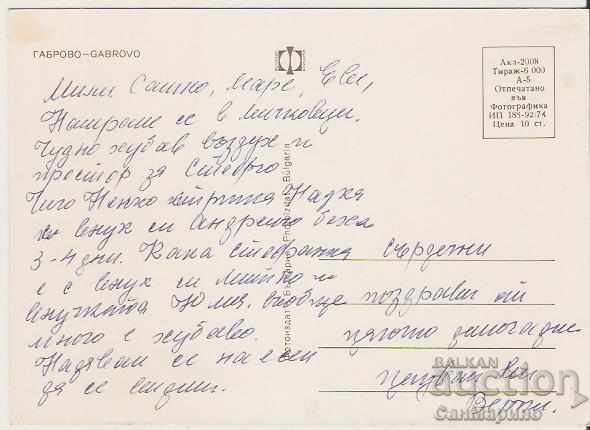 ГАБРОВО—GABROVO
Акл-2008
Тираж-6 000
А-5
Отпечатано
във
Фотографика
ИП 188-92/74
Цена 10 ст.
Мили Сашко, Маре, Еви,
Намираме се в
Чудно хубав въздух и
простор за
Чичо Ненко Надка
внук си Андрейчо бяха
3-4 дни. Кака Стефанка
е с внук си Митко и
внучката Юлия. Въобще
много е хубаво.
Надявам се на есен
да се видим.
сърдечни
поздрави от
цялото домочадие
Bulgaria
BALKAN
auction
Санмарино